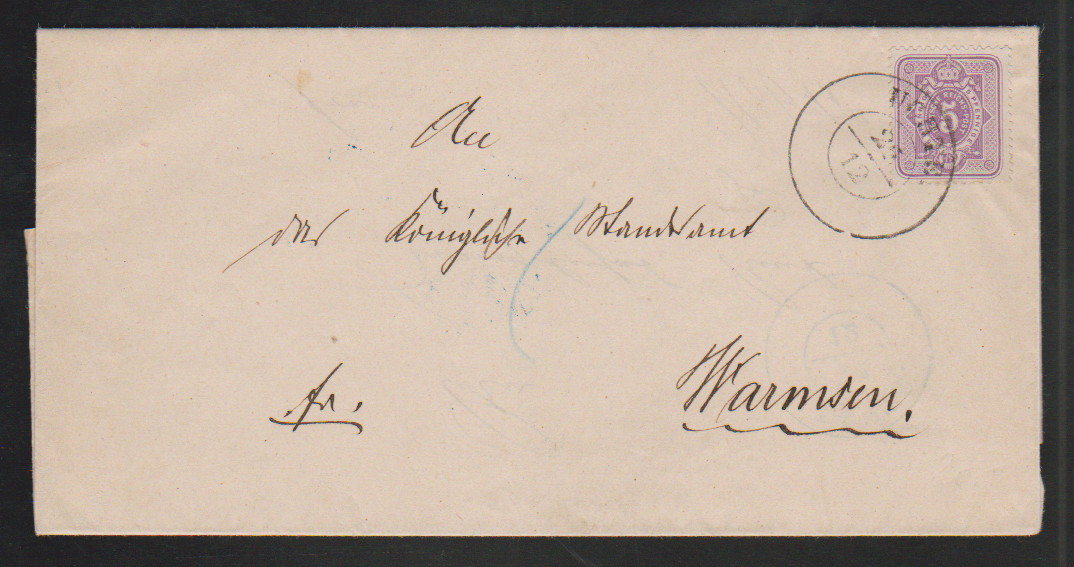 An
das Königliche Standesamt
fr.
Warmsen.
5
12